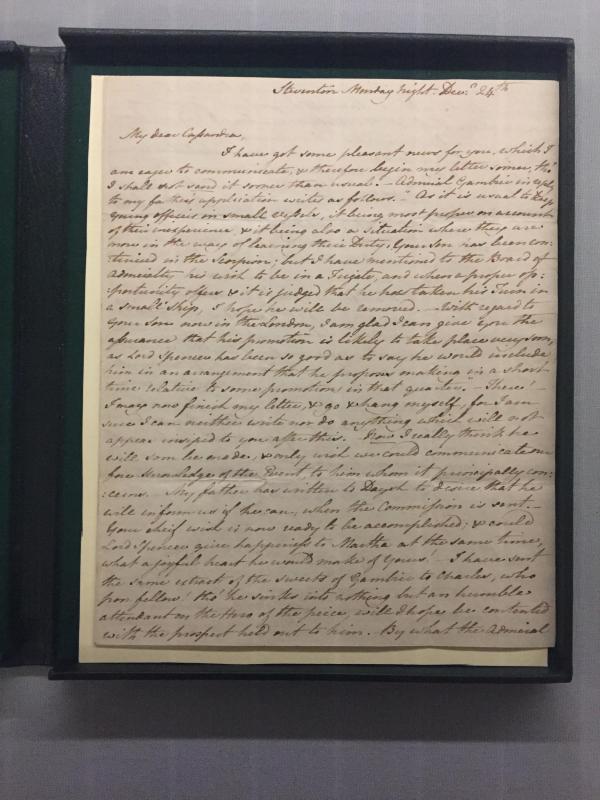 Steventon Monday night Decr. 24th
My dear Cassandra,
I have got some pleasant news for you, which I
am eager to communicate, & therefore begin my letter sooner, tho'
I shall not send it sooner than usual. - Admiral Gambier in reply
to my father's application writes as follows. "As it is usual to keep
young officers in small vessels, it being most proper on account
of their inexperience, & it being also a situation where they are
more in the way of learning their Duty, Your Son has been con:
:tinued in the Scorpion; but I have mentioned to the Board of
Admiralty his wish to be in a Frigate, and when a proper op:
:portunity offers & it is judged that he has taken his Turn in
a small Ship, I hope he will be removed. - With regard to
your Son now in the London, I am glad I can give you the
assurance that his promotion is likely to take place very soon,
as Lord Spencer has been so good as to say he would include
him in an arrangement that he proposes making in a short
time relative to some promotions in that quarter." - There!
I may now finish my letter, & go & hang myself, for I am
sure I can neither write nor do anything which will not
appear insipid to you after this. - Now I really think he
will soon be made, & only wish we could communicate our
fore-knowledge of the Event, to him whom it principally con:
:cerns. - My father has written to Daysh to desire that he
will inform us if he can, when the Commission is sent. -
Your cheif wish is now ready to be accomplished; & could
Lord Spencer give happiness to Martha at the same time,
what a joyful heart he would make of Yours! - I have sent
the same extract of the sweets of Gambier to Charles, who
poor fellow! tho' he sinks into nothing but an humble
attendant on the Hero of the peice, will I hope be contented
with the prospect held out to him. - By what the Admiral